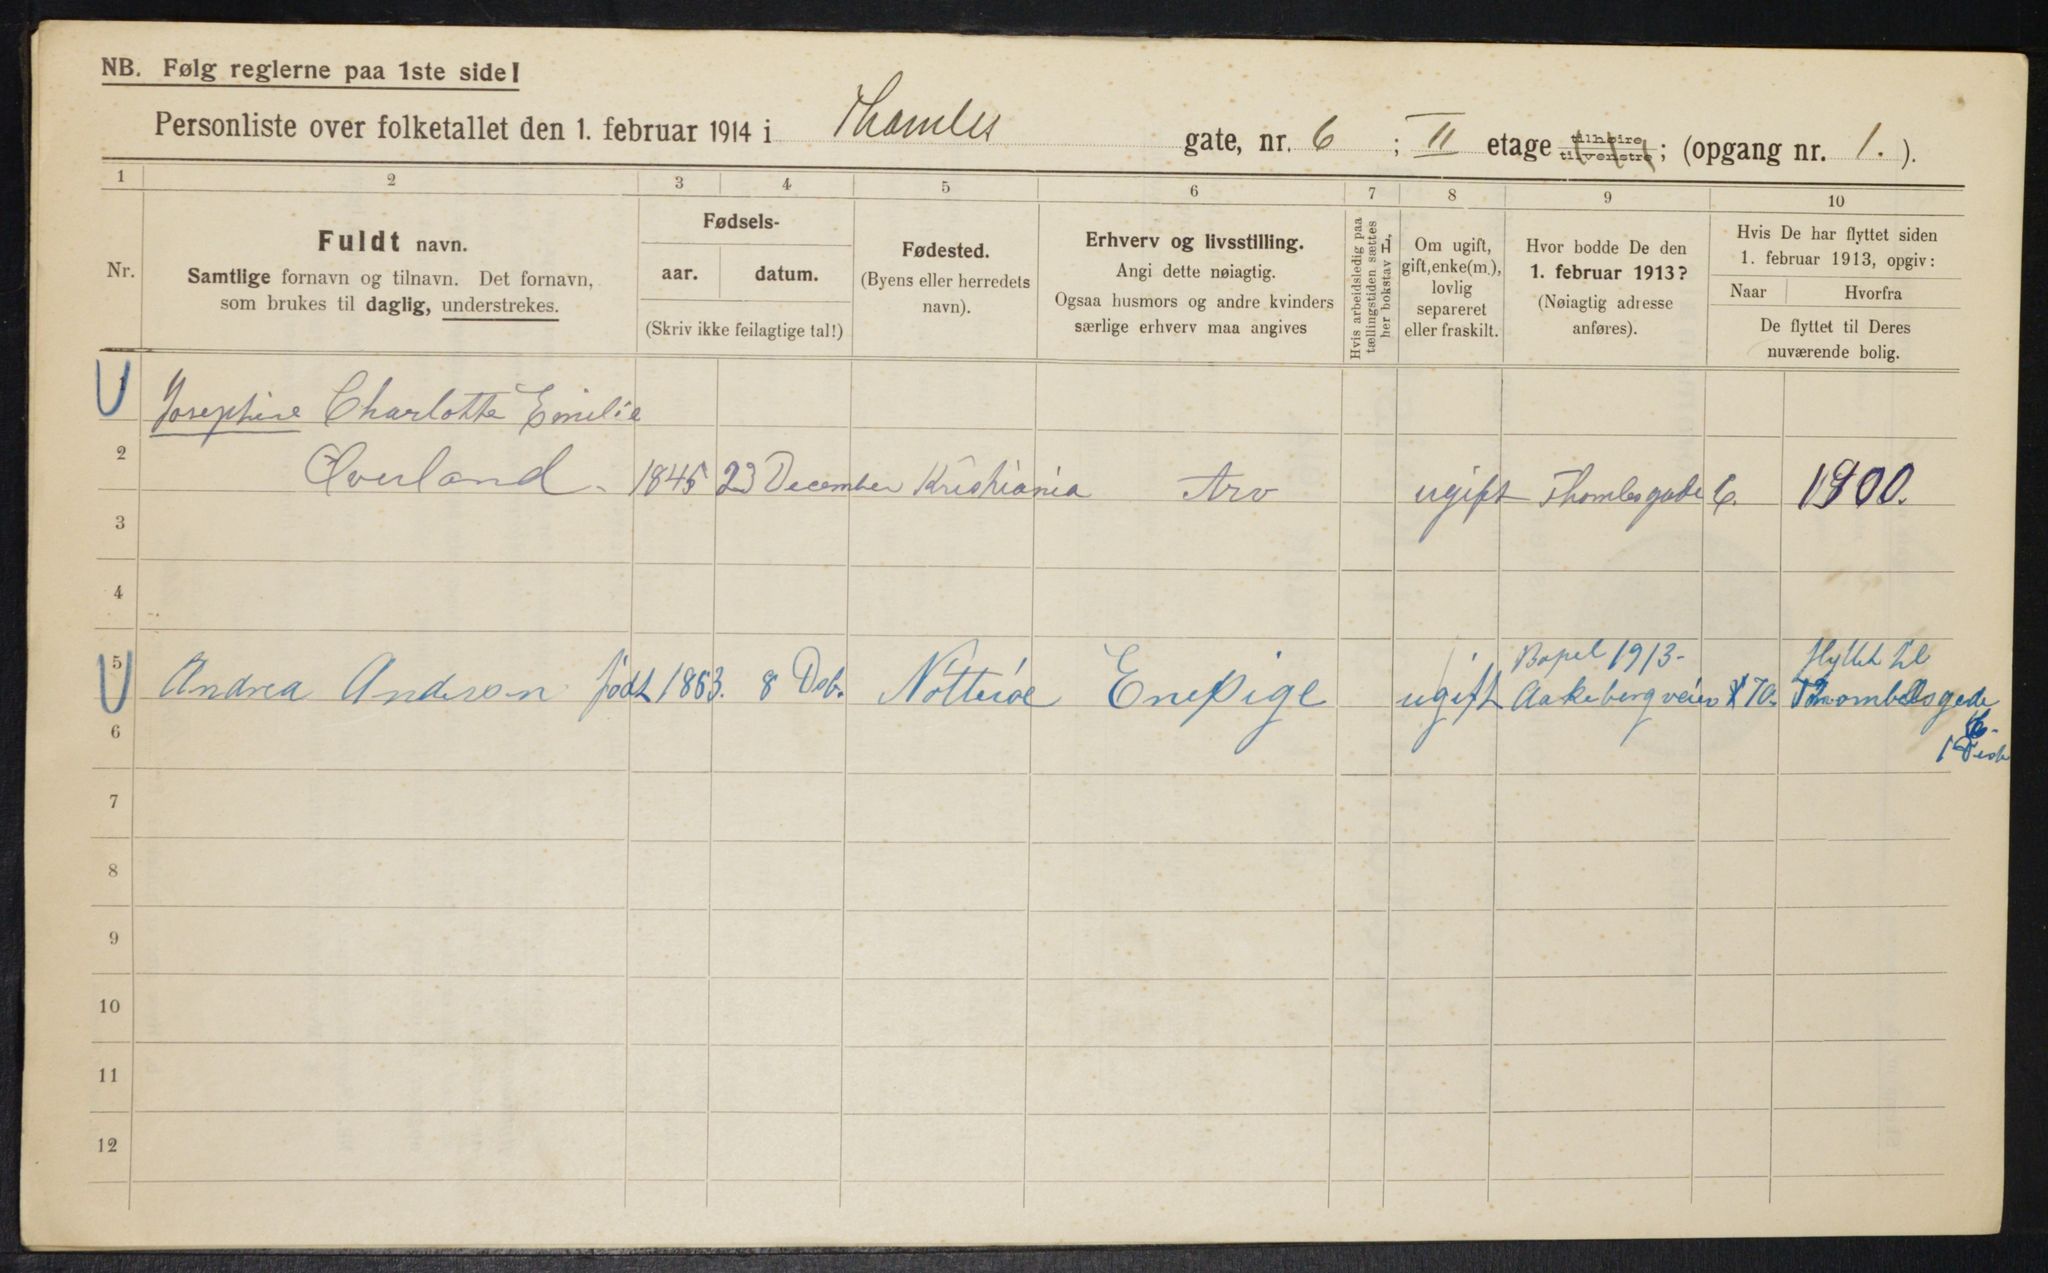 NB. Følg reglerne paa 1ste side!
Personliste over folketallet den 1. februar 1914 i Thambes gate, nr. 6 ; II etage tilhøire tilvenstre; (opgang nr. 1. ).
1 2 3 4 5 6 7 8 9 10
Nr.
Fuldt navn.
Samtlige fornavn og tilnavn. Det fornavn,
som brukes til daglig, understrekes.
Fødsels-
aar. datum.
(Skriv ikke feilagtige tal!)
Fødested.
(Byens eller herredets
navn).
Erhverv og livsstilling.
Angi dette nøiagtig.
Ogsaa husmors og andre kvinders
særlige erhverv maa angives
Hvis arbeidsledig paa
tællingstiden sættes
her bokstav L.
Om ugift,
gift, enke(m.),
lovlig
separeret
eller fraskilt.
Hvor bodde De den
1. februar 1913?
(Nøiagtig adresse
anføres).
Hvis De har flyttet siden
1. februar 1913, opgiv:
Naar Hvorfra
De flyttet til Deres
nuværende bolig.
1
Josephine Charlotte Emilie
2
Øverland. 1845 23 December Kristiania Arv ugift Thombesgade 6. 1900.
3
4
5
Bopel 1913- flyttet til
Andrea Andersen født 1863. 8 Dsb. Nötteröe Enepige ugift Aakebergveien 70. Thombesgade
6
6-
7
8
9
10
11
12